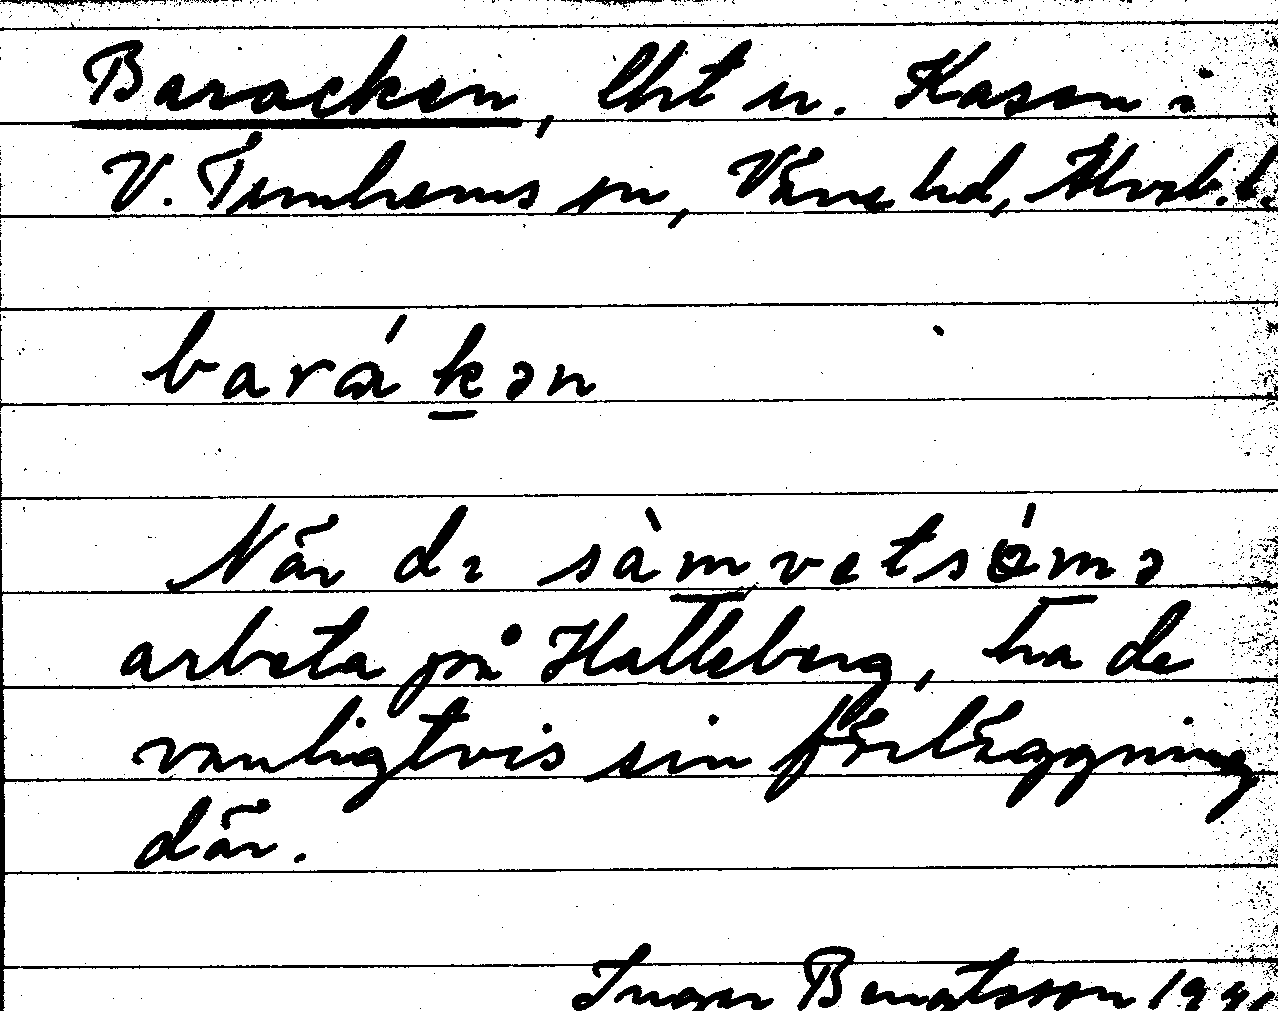 Baracken, lht u. Kasen i
V. Tunhems sn, Väne hd, Älvsb. l.
barákən
När di sàmvetsömə
arbeta på Halleberg, ha de
vanligtvis sin förläggning
där.
Ingar Bengtsson